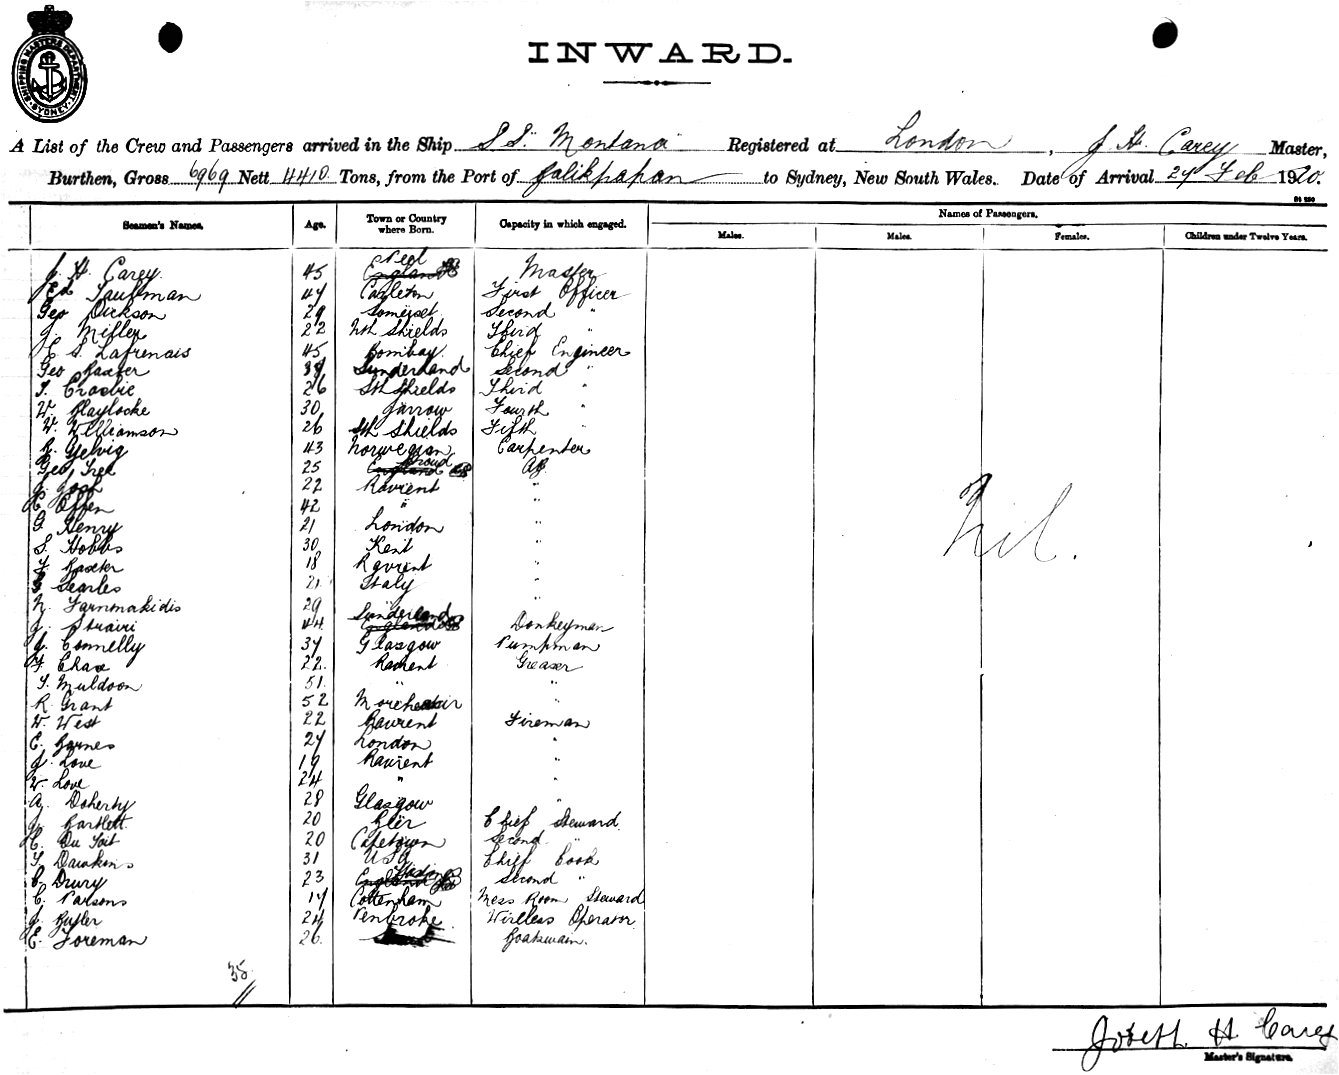 SHIPPING MASTERS DEPARTMENT
SYDNEY
INWARD.
A List of the Crew and Passengers arrived in the Ship S.S. "Montana" Registered at London, J H. Carey Master,
Burthen, Gross 6969 Nett 4410 Tons, from the Port of Balikpapan to Sydney, New South Wales. Date of Arrival 24 Feb 1920.
Seamen's Names. Age. Town or Country where Born. Capacity in which engaged. Names of Passengers.
Males. Males. Females. Children under Twelve Years.
J. H. Carey. 45 Peel England Master
Ed 47 Castleton First Officer
Geo Dickson 29 Somerset Second "
J. Miller 22 Nth Shields Third "
E S. Lafrenais 45 Bombay. Chief Engineer
Geo Baxter 39 Sunderland Second "
T. Crosbie 26 Sth Shields Third "
W. Haylocke 30 Jarrow Fourth "
W. Williamson 26 Sth Shields Fifth "
R. Gjelvig 43 Norwegian Carpenter
Geo 25 Stroud England AB
J. Gosh 22 "
H. Effen 42 " "
G. Henry 21 London "
S. Hobbs 30 Kent "
F. Baxter 18 "
S Searles 21 Italy "
N. Farnmakidis 29 "
J. 44 Sunderland England Donkeyman
J. Connelly 37 Glasgow Pumpman
F. Chase 22 Greaser
T. Muldoon 51. " "
R. Grant 52 "
W. West 22 Fireman
E. Barnes 27 London "
J. Love 19 "
W. Love 24 " "
A. Doherty 28 Glasgow "
J. Bartlett 20 Chief Steward
H. Du Toit 20 Capetown Second "
T. Dawkins 31 USA Chief Cook
C. Drury 23 England Second "
C. Parsons 17 Cottenham Mess Room Steward
J. Butler 24 Penbroke Wireless Operator
E. Foreman 26 Boatswain.
Nil.
35
Joseph H. Carey
Master's Signature.